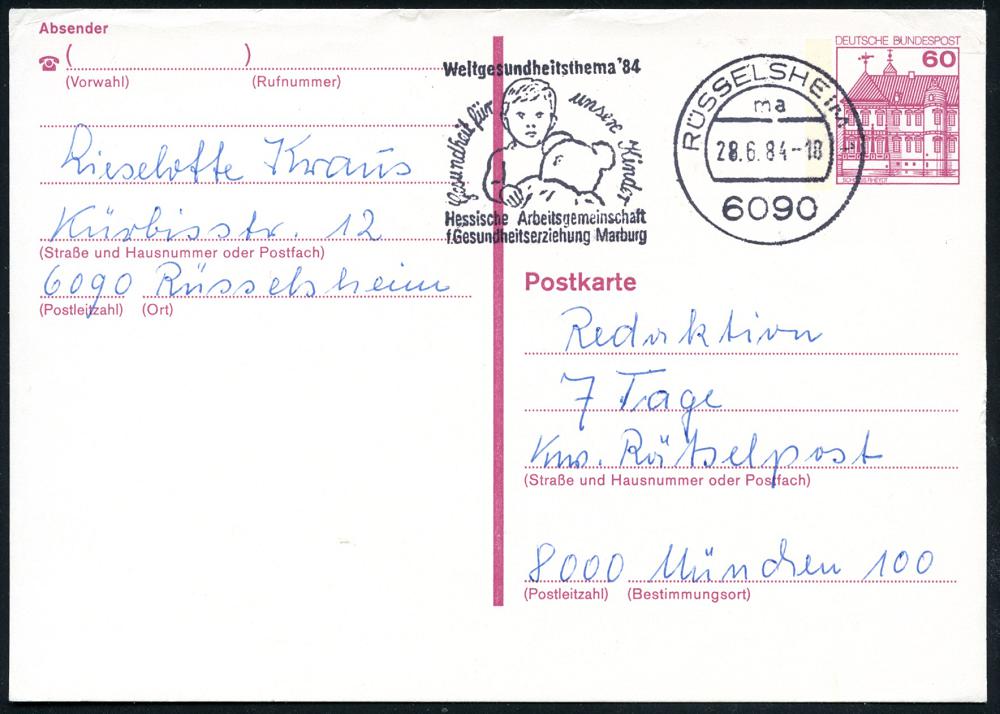 Absender
☎ ( )
(Vorwahl) (Rufnummer)
Lieselotte Kraus
Kürbisstr. 12
(Straße und Hausnummer oder Postfach)
6090 Rüsselsheim
(Postleitzahl) (Ort)
Weltgesundheitsthema '84
Gesundheit für unsere Kinder
Hessische Arbeitsgemeinschaft
f.Gesundheitserziehung Marburg
RÜSSELSHEIM 1
ma
28.6.84-18
6090
DEUTSCHE BUNDESPOST
60
SCHLOSS RHEYDT
Postkarte
Redaktion
7 Tage
Knw. Rätselpost
(Straße und Hausnummer oder Postfach)
8000 München 100
(Postleitzahl) (Bestimmungsort)